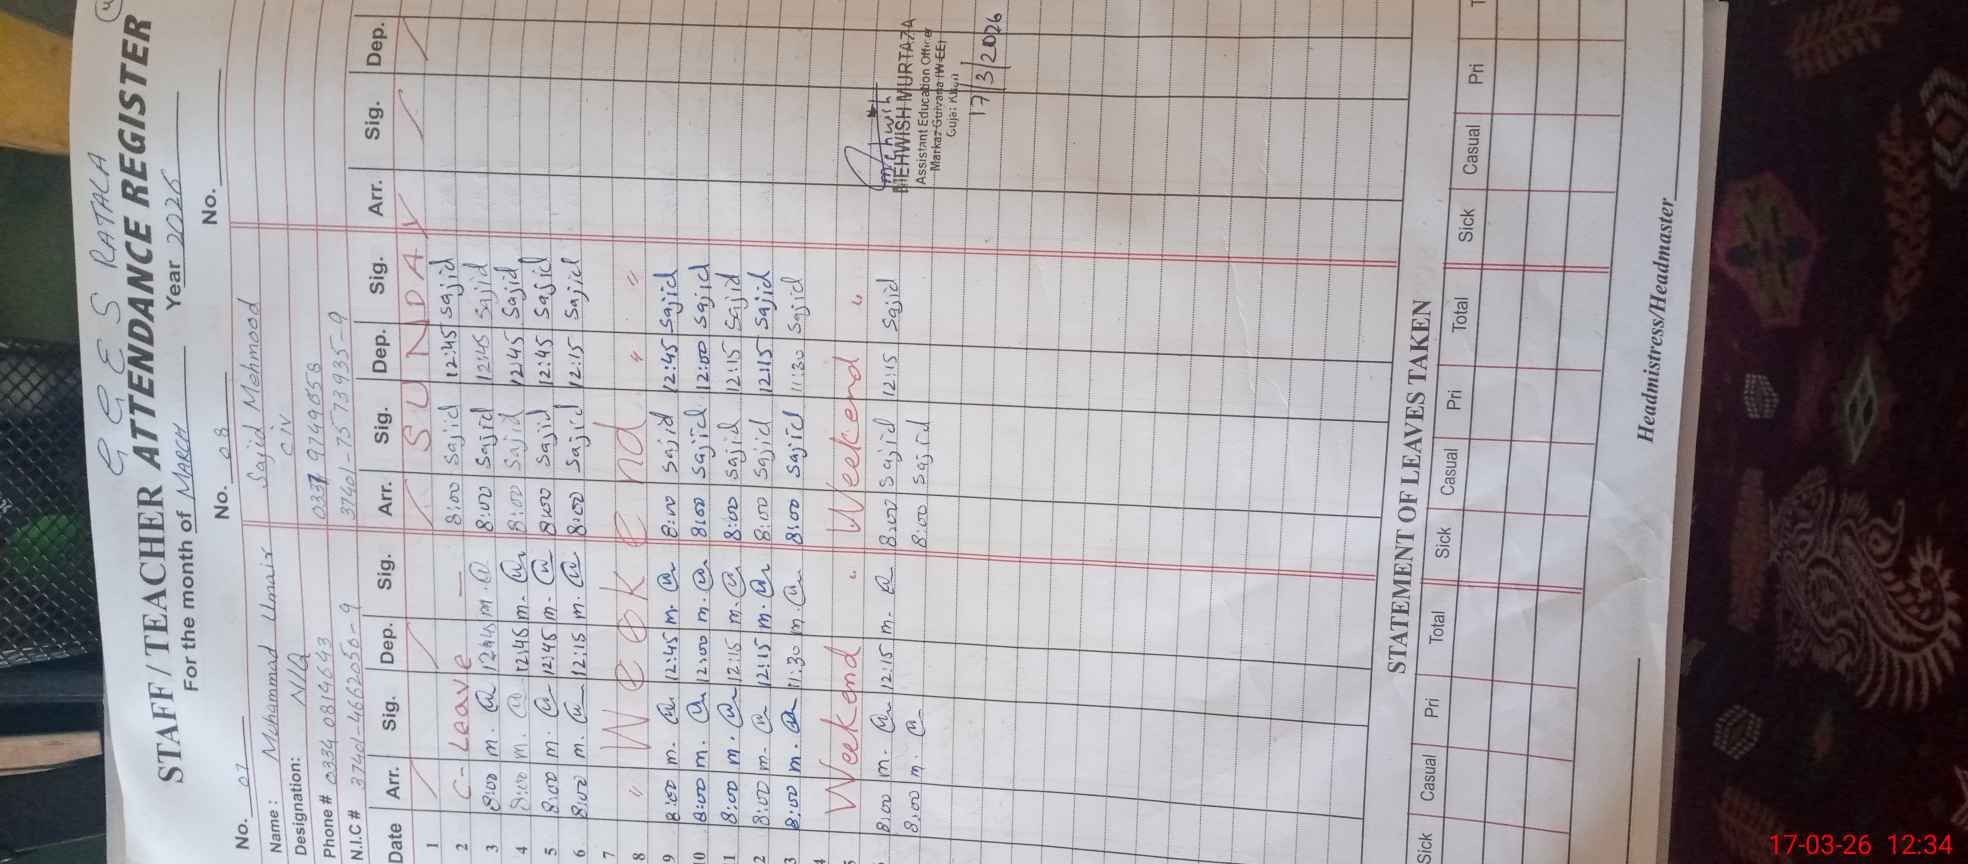 G G E S RATALA
STAFF / TEACHER ATTENDANCE REGISTER
For the month of MARCH Year 2026
No. 07 No. 08 No.
Name : Muhammad Umair Sajid Mehmood
Designation: N/Q C/V
Phone # 0334 0814643 0337 9749658
N.I.C # 37401-4662050-9 37401-7573935-9
Date Arr. Sig. Dep. Sig. Arr. Sig. Dep. Sig. Arr. Sig. Dep.
1 S U N D A Y
2 C- Leave — 8:00 Sajid 12:45 Sajid
3 8:00 m. 12:45 m. 8:00 Sajid 12:45 Sajid
4 8:00 m. 12:45 m. 8:00 Sajid 12:45 Sajid
5 8:00 m. 12:45 m. 8:00 Sajid 12:45 Sajid
6 8:00 m. 12:15 m. 8:00 Sajid 12:15 Sajid
7 " W e e K e n d " "
8
9 8:00 m. 12:45 m. 8:00 Sajid 12:45 Sajid
10 8:00 m. 12:00 m. 8:00 Sajid 12:00 Sajid
1 8:00 m. 12:15 m. 8:00 Sajid 12:15 Sajid
2 8:00 m. 12:15 m. 8:00 Sajid 12:15 Sajid
3 8:00 m. 11:30 m. 8:00 Sajid 11:30 Sajid
4 Weekend " Weekend "
5
8:00 m. 12:15 m. 8:00 Sajid 12:15 Sajid
8:00 m. 8:00 Sajid
Mehwish
MEHWISH MURTAZA
Assistant Education Officer
Markaz Guliana (W-EE)
Gujar Khan
17/3/2026
STATEMENT OF LEAVES TAKEN
Sick Casual Pri Total Sick Casual Pri Total Sick Casual Pri T
Headmistress/Headmaster
17-03-26 12:34